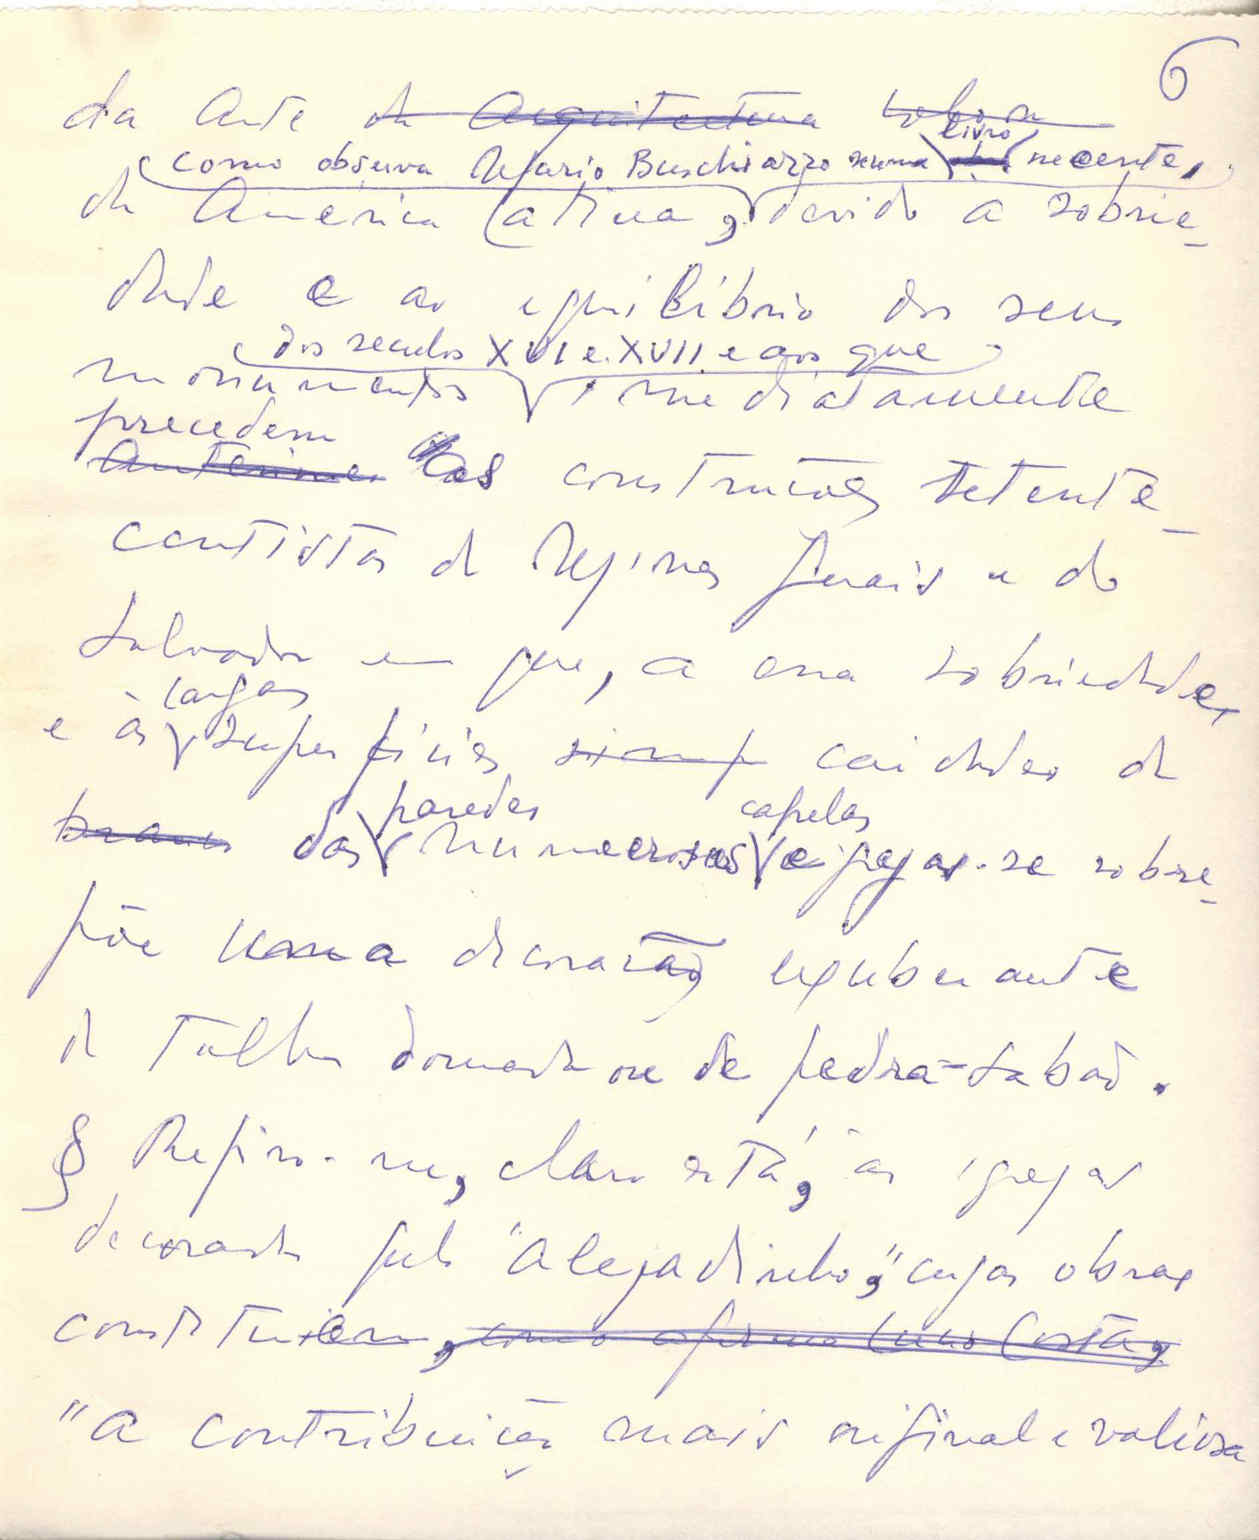 6
da Arte da Arquitectura
livro
como observa Mario Buschiazzo recente,
da América Latina, devido à sobrie-
dade e ao equilíbrio dos seus
dos seculos XVI e XVII e aos que
monumentos imediatamente
precedem
as construções setente-
centistas de Minas Gerais e do
Salvador em que, a essa sobriedade,
largas
e às superfícies simp caiadas de
paredes capelas
branco das numerosas e igrejas-se sobre-
põe uma decoração exuberante
de Talha dourada ou de pedra-sabão.
§ Refiro-me, claro está, às igrejas
decoradas pelo "Alejadinho," cujas obras
constituiem, como afirma Lucio Costa,
"a contribuição mais original e valiosa